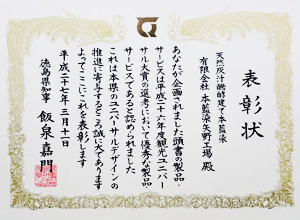 表彰状
天然灰汁醗酵建て本藍染
有限会社 本藍染矢野工場 殿
あなたが企画されました頭書の製品・
サービスは平成二十六年度観光ユニバー
サル大賞の選考において優秀な製品・
サービスであると認められました
これは本県のユニバーサルデザインの
推進に寄与するところ誠に大であります
よってここにこれを表彰します
平成二十七年三月十一日
徳島県知事 飯泉嘉門